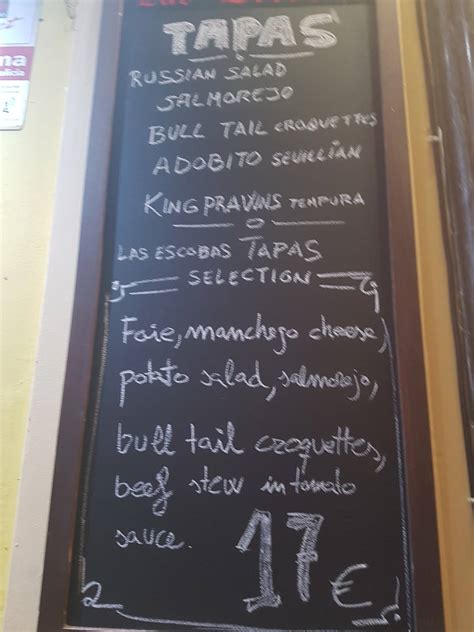 TAPAS
RUSSIAN SALAD
SALMOREJO
BULL TAIL CROQUETTES
ADOBITO SEVILLIAN
KING PRAVINS TEMPURA
LAS ESCOBAS TAPAS
SELECTION
Foie, manchejo cheese,
potato salad, salmorejo,
bull tail croquettes,
beef stew in tomato
sauce. 17 €